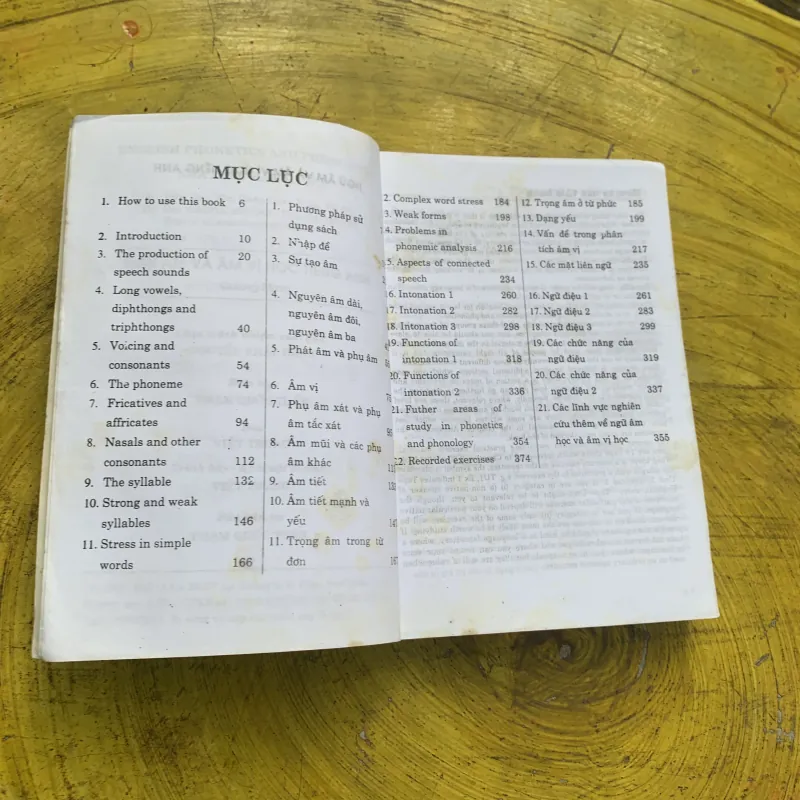 MỤC LỤC
1. How to use this book 6
2. Introduction 10
3. The production of 20
speech sounds
4. Long vowels,
diphthongs and
triphthongs 40
5. Voicing and
consonants 54
6. The phoneme 74
7. Fricatives and
affricates 94
8. Nasals and other
consonants 112
9. The syllable 132
10. Strong and weak
syllables 146
11. Stress in simple
words 166
1. Phương pháp sử
dụng sách
2. Nhập đề
3. Sự tạo âm
4. Nguyên âm dài,
nguyên âm đôi,
nguyên âm ba
5. Phát âm và phụ âm
6. Âm vị
7. Phụ âm xát và phụ
âm tắc xát
8. Âm mũi và các phụ
âm khác
9. Âm tiết
10. Âm tiết mạnh và
yếu
11. Trọng âm trong từ
đơn
2. Complex word stress 184
3. Weak forms 198
4. Problems in
phonemic analysis 216
5. Aspects of connected
speech 234
16. Intonation 1 260
17. Intonation 2 282
18. Intonation 3 298
19. Functions of
intonation 1 318
20. Functions of
intonation 2 336
21. Futher areas of
study in phonetics
and phonology 354
22. Recorded exercises 374
12. Trọng âm ở từ phức 185
13. Dạng yếu 199
14. Vấn đề trong phân
tích âm vị 217
15. Các mặt liên ngữ 235
16. Ngữ điệu 1 261
17. Ngữ điệu 2 283
18. Ngữ điệu 3 299
19. Các chức năng của
ngữ điệu 319
20. Các chức năng của
ngữ điệu 2 337
21. Các lĩnh vực nghiên
cứu thêm về ngữ âm
học và âm vị học 355